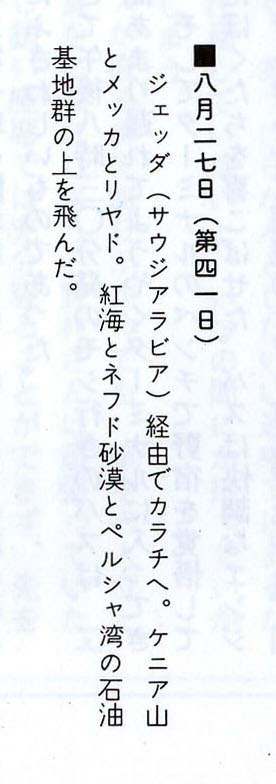 ■八月二七日（第四一日）
ジェッダ（サウジアラビア）経由でカラチへ。ケニア山
とメッカとリヤド。紅海とネフド砂漠とペルシャ湾の石油
基地群の上を飛んだ。